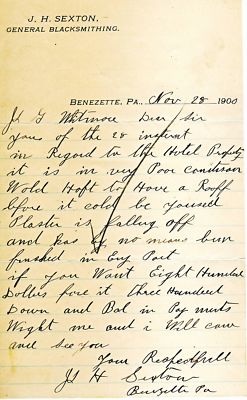 J. H. SEXTON.
GENERAL BLACKSMITHING.
BENEZETTE, PA., Nov 28 1900
J G Whitmore Dear Sir
yours of the 28 instant
in Regard to the Hotel Property
it is in very Poor condision
Wold Haft to Have a Rooff
before it cold be yoused
Plaster is falling off
and has by no means bin
finished in Eny Part
if you Want Eight Hundred
Dollers fore it three Hundred
Down and Bal in Payments
Wright me and i Will come
and see you
Your Respectfull
J H Sexton
Benezette Pa